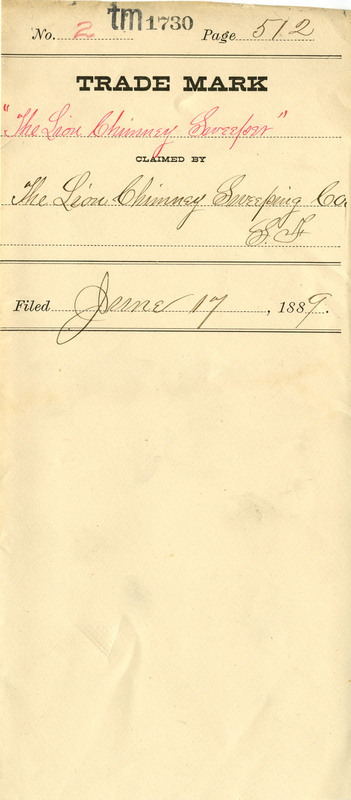 No. 2 tm 1730 Page 512
TRADE MARK
"The Lion Chimney Sweeper"
CLAIMED BY
The Lion Chimney Sweeping Co.
S. F.
Filed June 17, 1889.